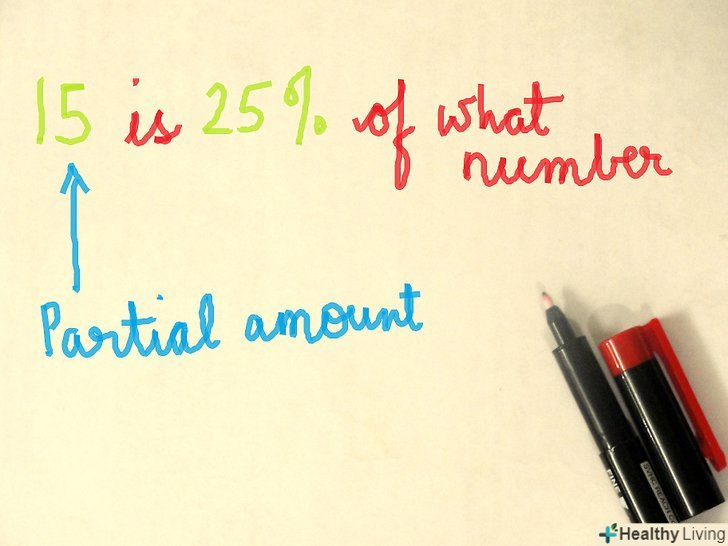 15 is 25% of what
number
Partial amount
FINE
Healthy Living